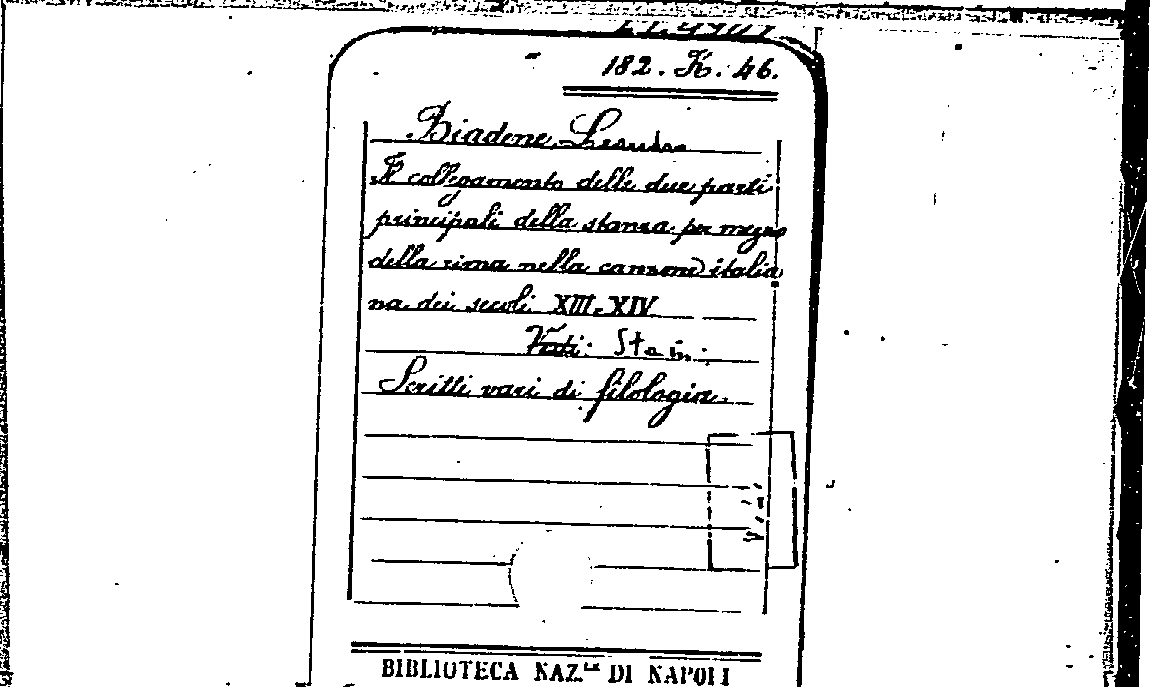 182. K. 46.
Biadene Leandro
Il collegamento delle due parti
principali della stanza per mezzo
della rima nella canzone italia
na dei secoli XIII-XIV
Vedi:
Scritti vari di filologia
BIBLIOTECA NAZ.LE DI NAPOLI